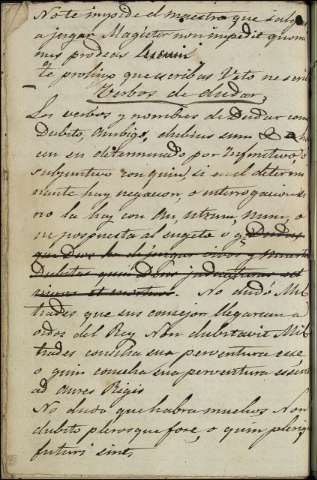 No te impide el maestro que salgas
a jugar Magister non impedit quomi
nus prodeas lusum
te prohivo que escribas Veto ne scrib
Verbos de dudar
Los verbos y nombres de Dudar com
Dubito, Ambigo, dubius sum
un su determinado por Infinitivo o
subjuntivo con quin, si en el determi
nante hay negacion, o interrogacion si
no la hay con An, utrum, num, o
ne pospuesta al sugeto o
No dudó Mil
tiades que sus consejos llegarian a
oidos del Rey Non dubitavit Mil
tiades consilia sua perventura esse,
o quin consilia sua perventura essent
ad aures Regis
No dudo que habra muchos Non
dubito plerosque fore, o quin pleriq
futuri sint,